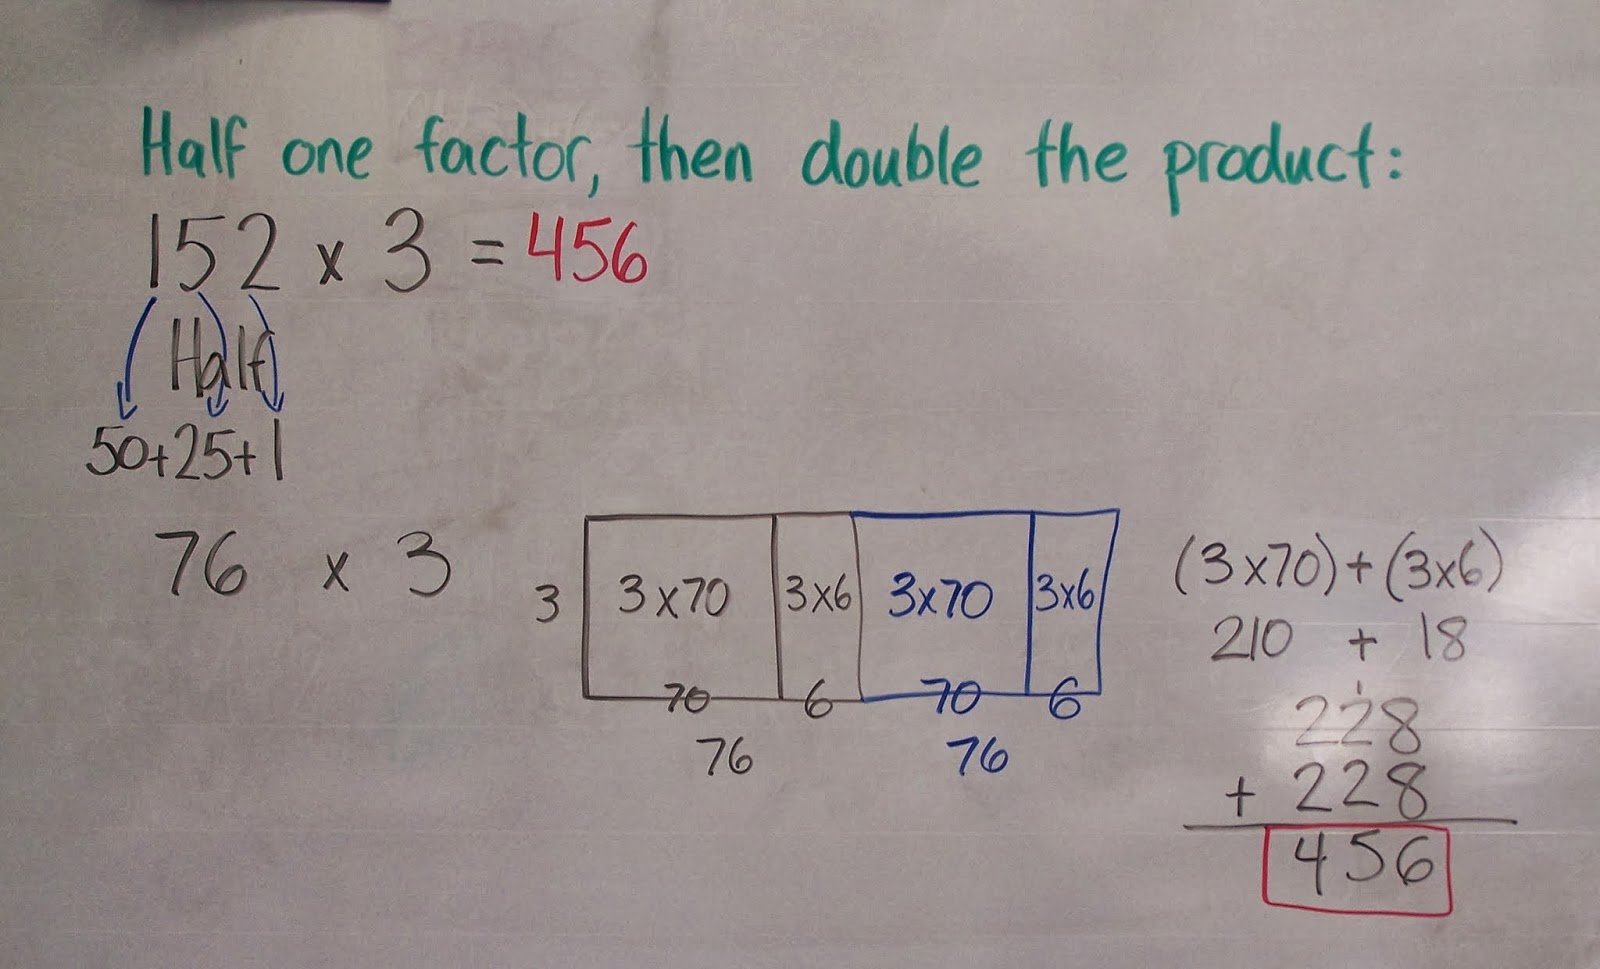 Half one factor, then double the product:
152 x 3 = 456
Half
50+25+1
76 x 3
3 3x70 3x6 3x70 3x6
70 6 70 6
76 76
(3x70)+(3x6)
210 + 18
1
228
+ 228
456